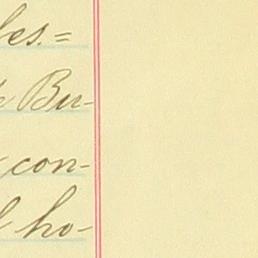 les.=
Bu-
con-
ho-